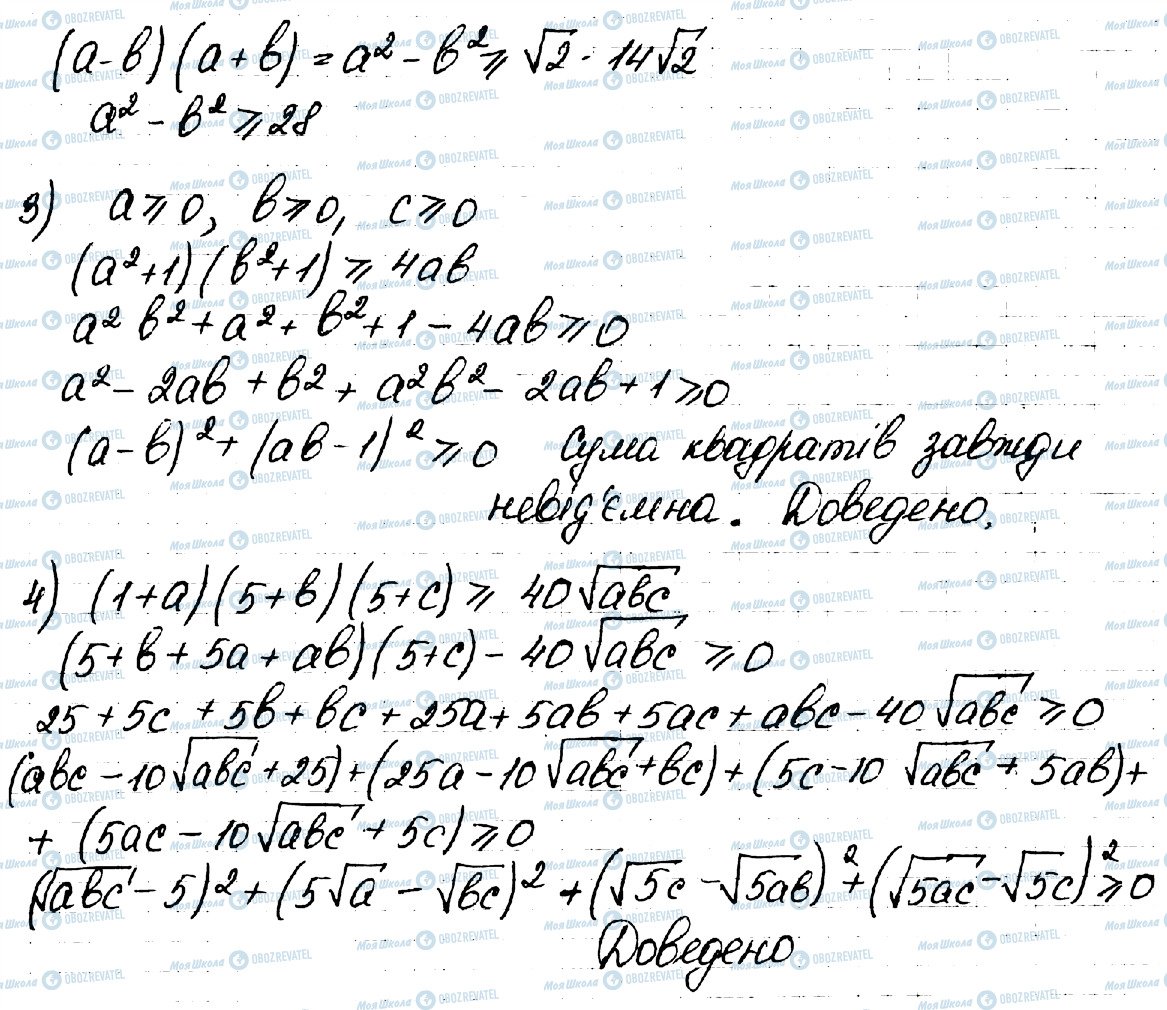 (a-b)(a+b) = a² - b² ⩾ √2 · 14√2
a² - b² ⩾ 28
3) a ⩾ 0, b ⩾ 0, c ⩾ 0
(a²+1)(b²+1) ⩾ 4ab
a² b² + a² + b² + 1 - 4ab ⩾ 0
a² - 2ab + b² + a²b² - 2ab + 1 ⩾ 0
(a-b)² + (ab-1)² ⩾ 0 Сума квадратів завжди
невід'ємна. Доведено.
4) (1+a)(5+b)(5+c) ⩾ 40√abc
(5+b+5a+ab)(5+c) - 40√abc ⩾ 0
25 + 5c + 5b + bc + 25a + 5ab + 5ac + abc - 40√abc ⩾ 0
(abc - 10√abc + 25) + (25a - 10√abc + bc) + (5c - 10√abc + 5ab) +
+ (5ac - 10√abc + 5c) ⩾ 0
(√abc - 5)² + (5√a - √bc)² + (√5c - √5ab)² + (√5ac - √5c)² ⩾ 0
Доведено